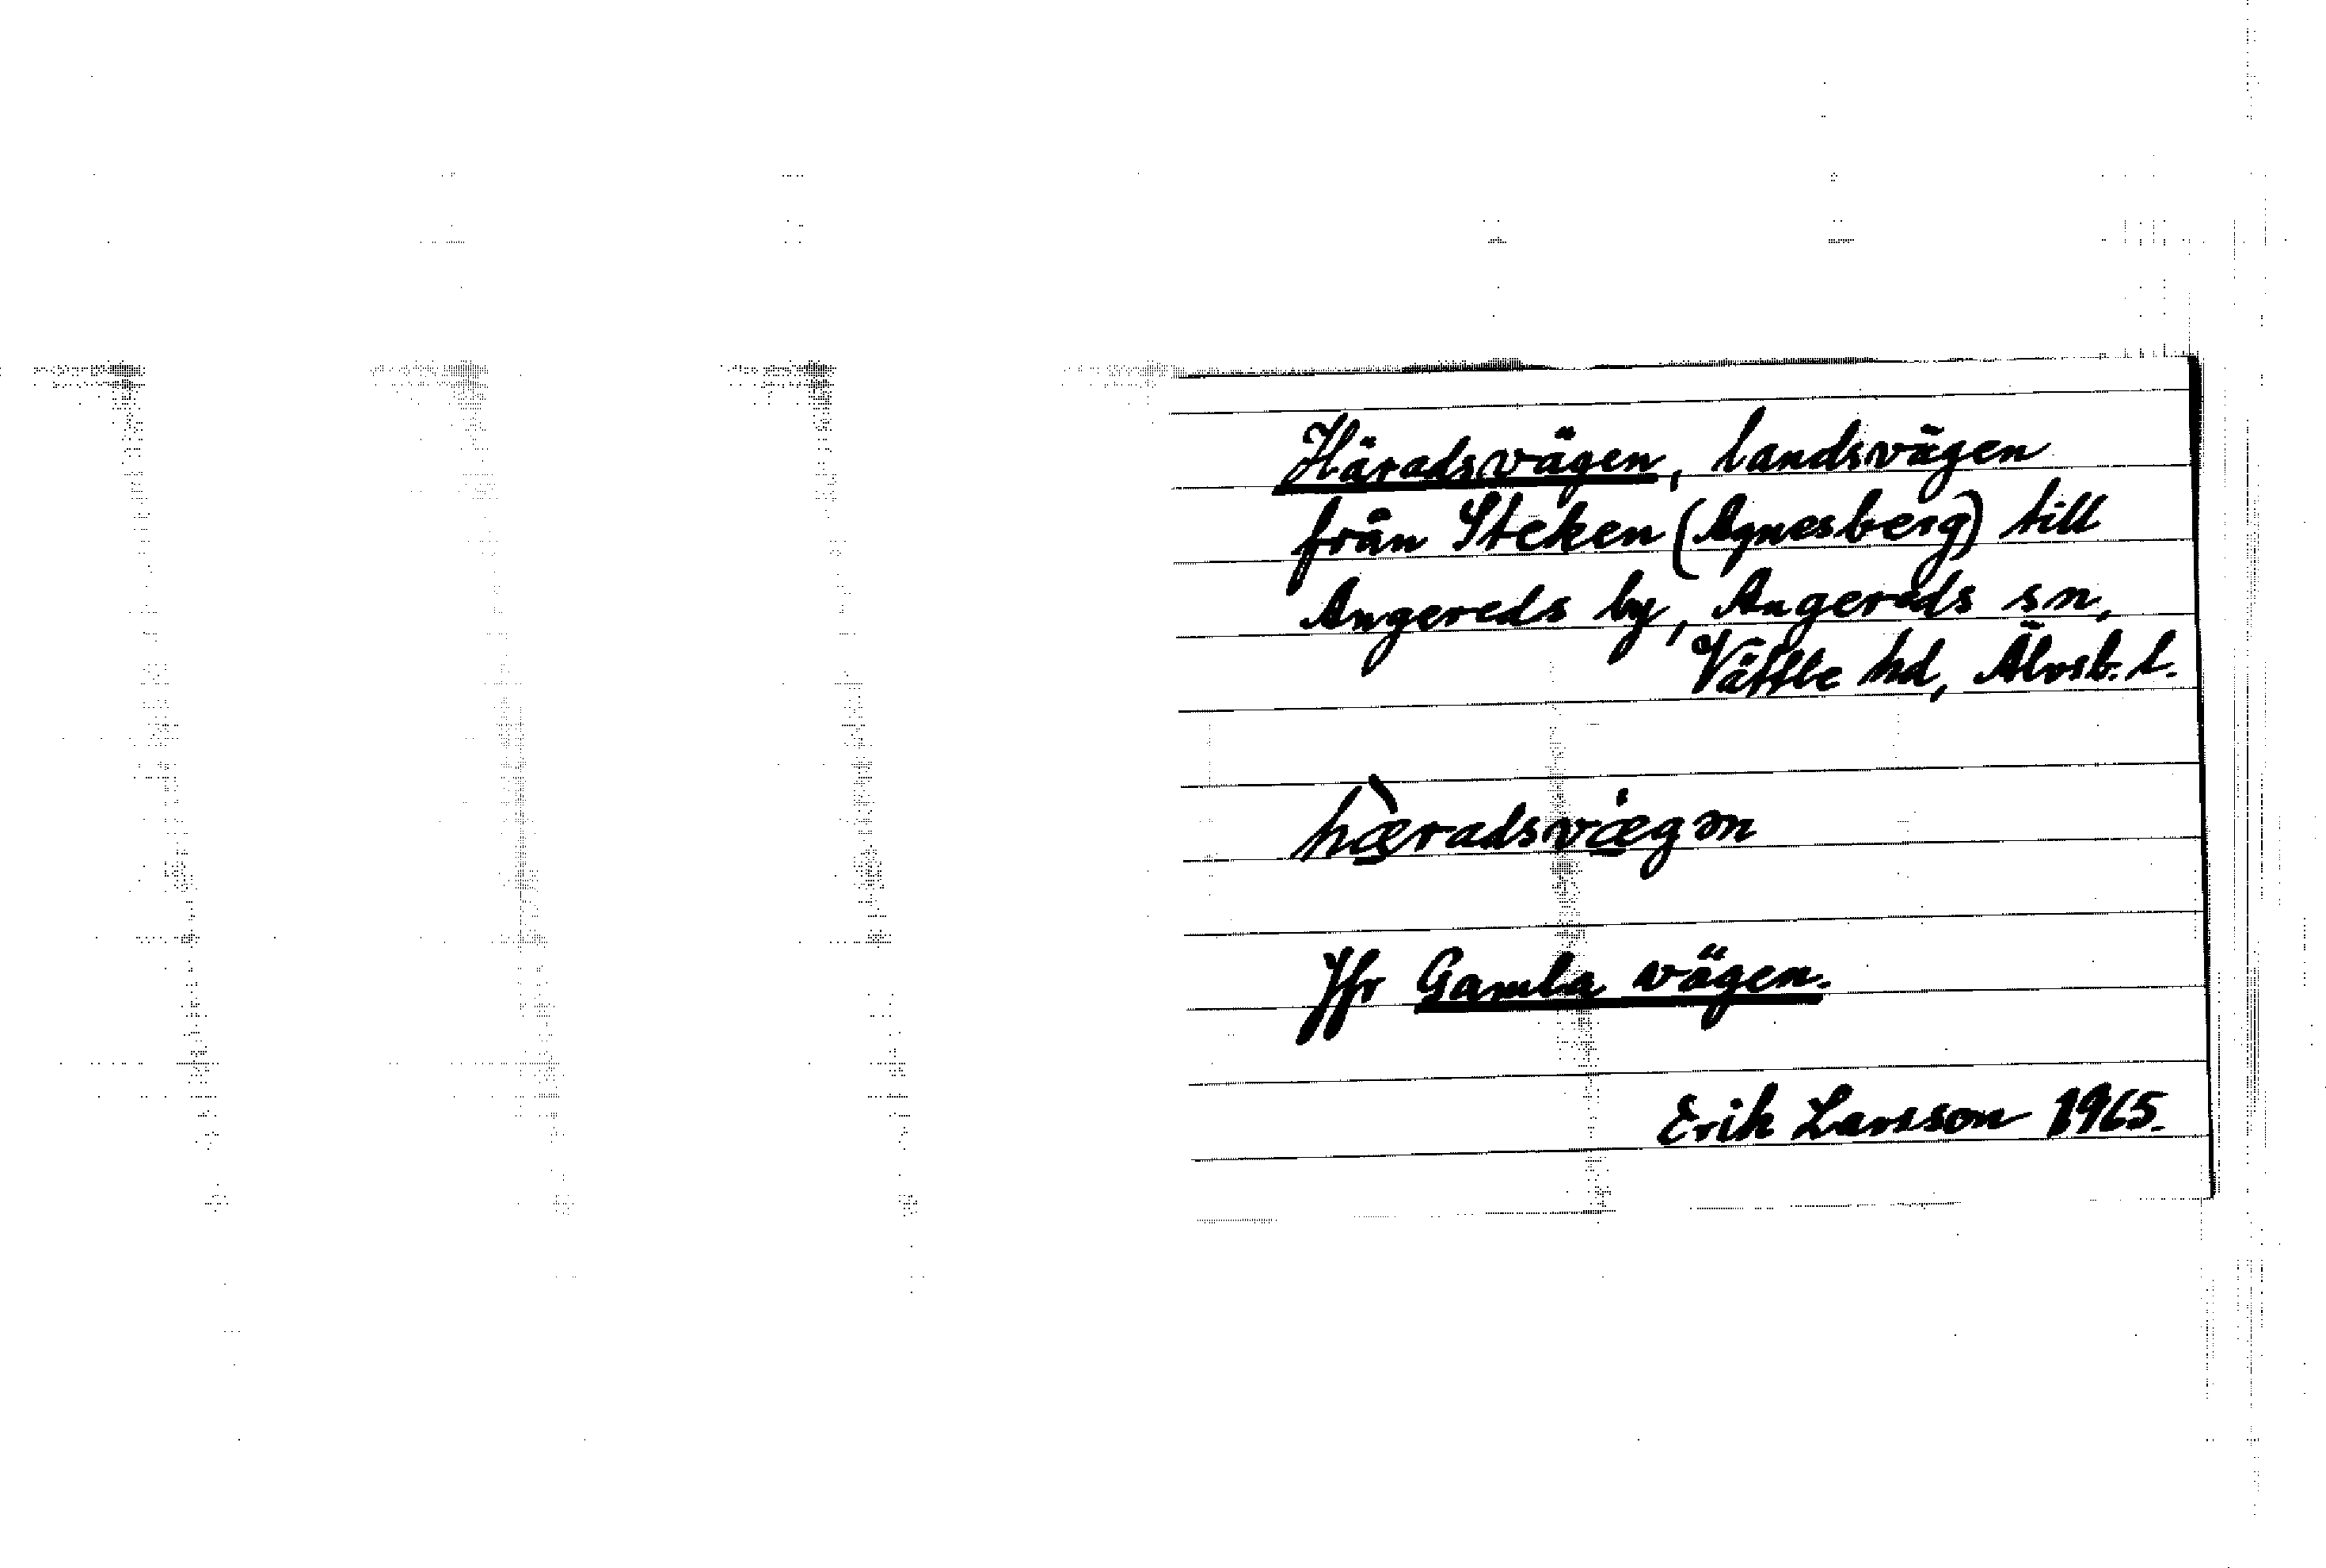 Häradsvägen, landsvägen
från Steken (Agnesberg) till
Angereds by, Angereds sn,
Vättle hd, Älvsb. l.
hæ̀radsvægən
Jfr Gamla vägen.
Erik Larsson 1965.